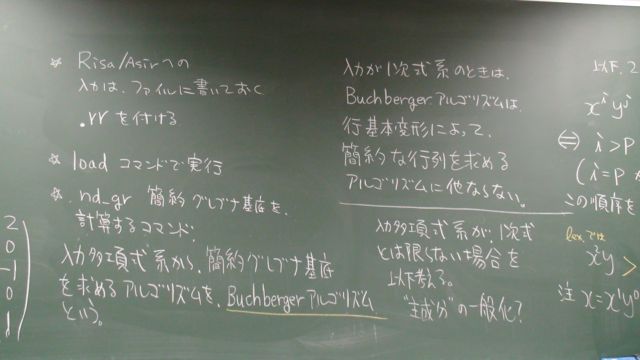 ☆ Risa/Asirへの
入力は、ファイルに書いておく
.rr を付ける
☆ load コマンドで実行
☆ nd_gr 簡約グレブナ基底を、
計算するコマンド.
入力多項式系から、簡約グレブナ基底
を求めるアルゴリズムを、Buchbergerアルゴリズム
という。
2
0
-1
0
1
入力が1次式系のときは、
Buchbergerアルゴリズムは、
行基本変形によって、
簡約な行列を求める
アルゴリズムに他ならない。
入力多項式系が、1次式
とは限らない場合を
以下考える。
"主成分"の一般化?
以下、2
xⁱyʲ
⇔ i>p
(i=p
この順序を
lex. では
x¹y >
注 x=x¹y⁰